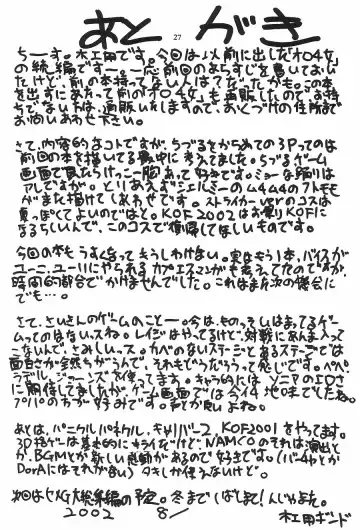 あとがき
27
ちーす。木工用です。今回は以前に出した「オロ4女」
の続編ですー。一応前回のあらすじを書いておい
たけど、前の本持ってない人は?だったかも。この本
を出すにあたって前の「オロ4女」も再販したので、お持
ちでない方は、通販いたしますので、おくづけの住所まで
お問いあわせ下さい。
さて、内容的なコトですが、ちづるをからめての3Pってのは
前回の本を描いてる最中に考えてました。ちづるゲーム
画面で見たらけっこー胸あって好きです。ミョーな踊りは
アレですが。とりあえずシェルミーのムチムチのフトモモ
がまた描けてしあわせです。ストライカーverのコスは
夏っぽくてよいのではと。KOF2002はお祭りKOFに
なるらしいんで、このコスで復帰してほしいものです。
今回の本もうすくなってもうしわけない。実はもう1本、バイスが
ユーニ、ユーリにやられるカプエスネタも考えてたのですが、
時間的都合でかけませんでした。これはまた次の機会に
でも…。
さて、さいきんのゲームのこと―。今は、ものっそいはまってるゲー
ムってのはないっスね。レイジはやってるけど、対戦にあんま入って
こないんで、さみしいっス。カベのないステージとあるステージでは
面白さが全然ちがうんで、それもどうだろうって感じです。
ってます。キャラ的には
に期待してましたが、ゲーム画面では今イチ地味でしたね。
の方が好みです。声が良いよね。
あとは、パニクルパネクル、キカイバース、KOF2001をやってます。
3D格ゲーは基本的にキライだけど、NAMCOのそれは演出と
か、BGMとか新しい感動があるので好きです。(バーチャとか
DorAにはそれがない)タキしか使えないけど。
次回はセAG大総集編の予定。冬までしばしまて!んじゃまた。
2002 8/ 木工用ボンド